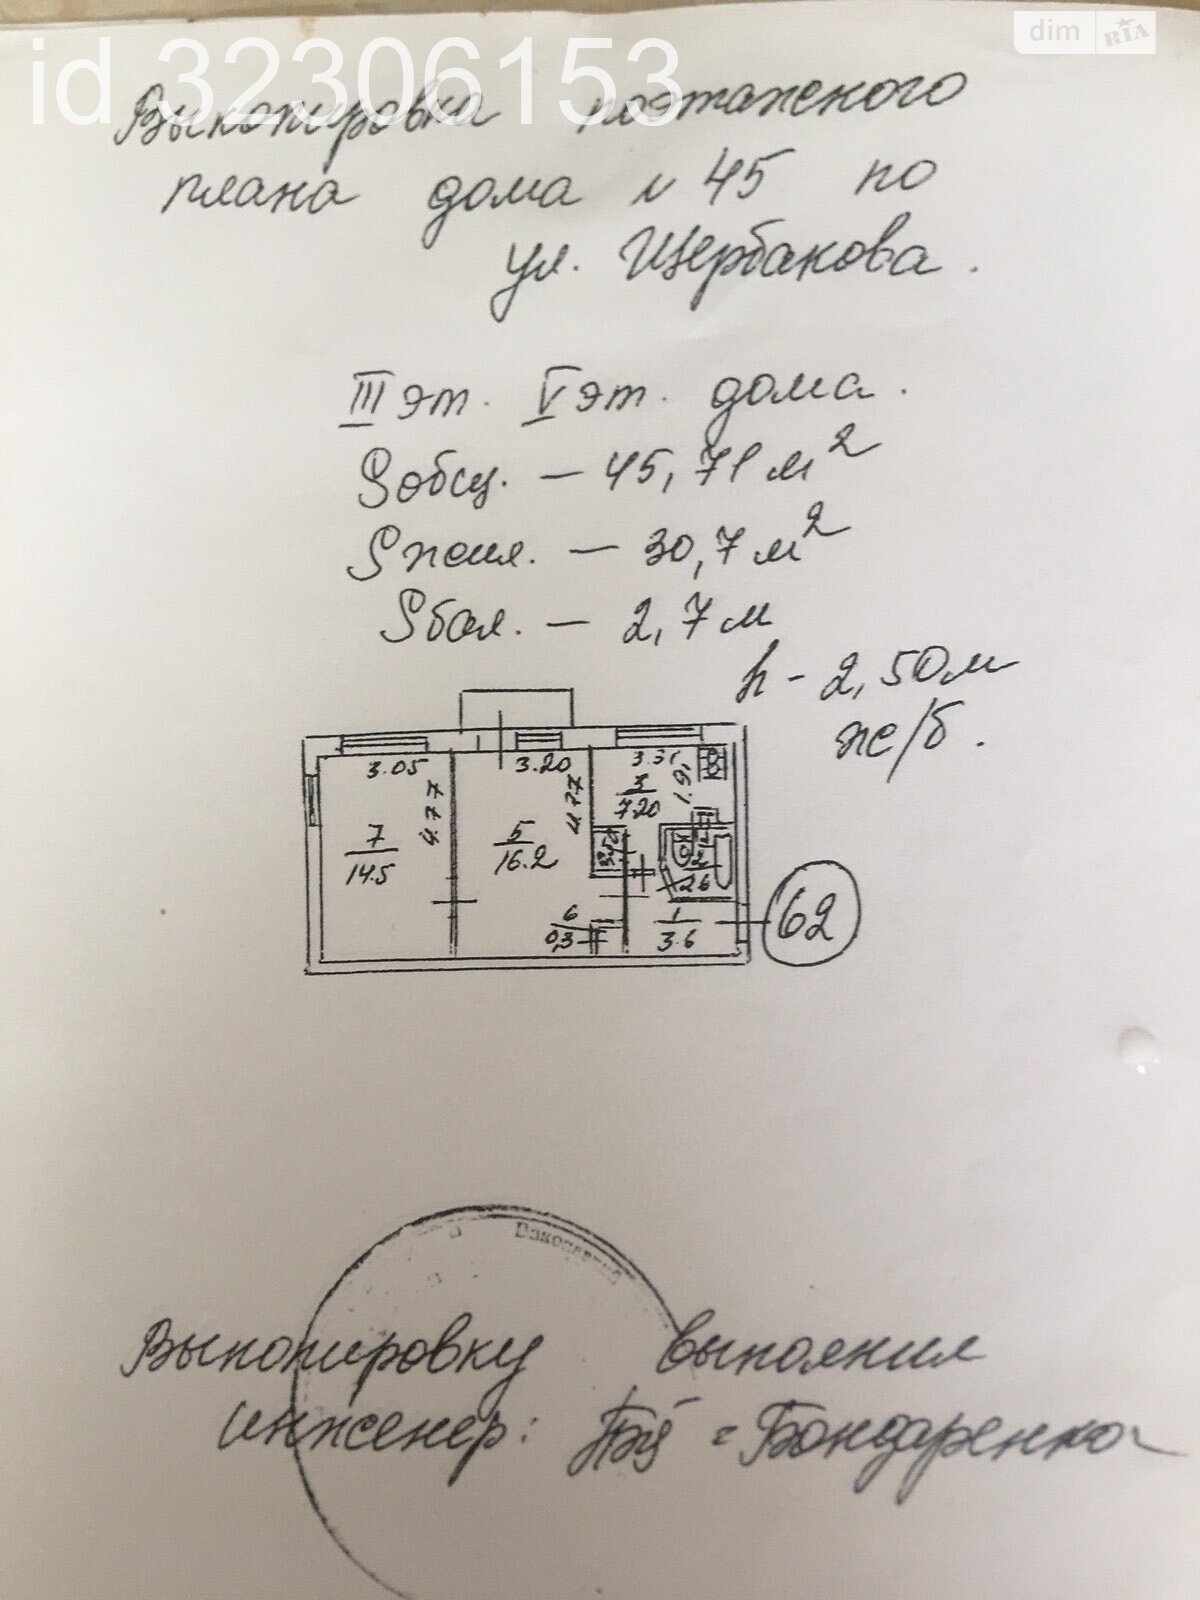 id 32306153
dim RIA
Выкопировка поэтажного
плана дома № 45 по
ул. Щербакова.
III эт. V эт. дома.
Sобщ. – 45,71 м²
Sжил. – 30,7 м²
Sбал. – 2,7 м
h - 2,50 м
ж/б.
3.05
3.20
3.31
4.77
4.77
1.91
3
7.20
7
14.5
5
16.2
2
2.6
6
0,3
1
3.6
62
Выкопировку выполнил
инженер: Бондаренко